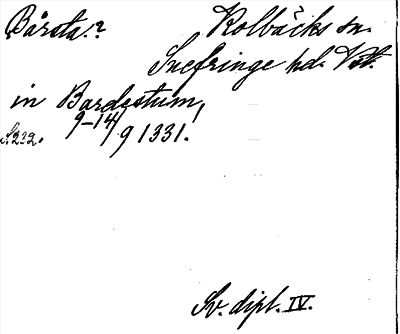 Bårsta.? Kolbäcks sn.
Snefringe hd. Vstm.
in Bardestum,
S. 232. 9-14/9 1331.
Sv. dipl. IV.